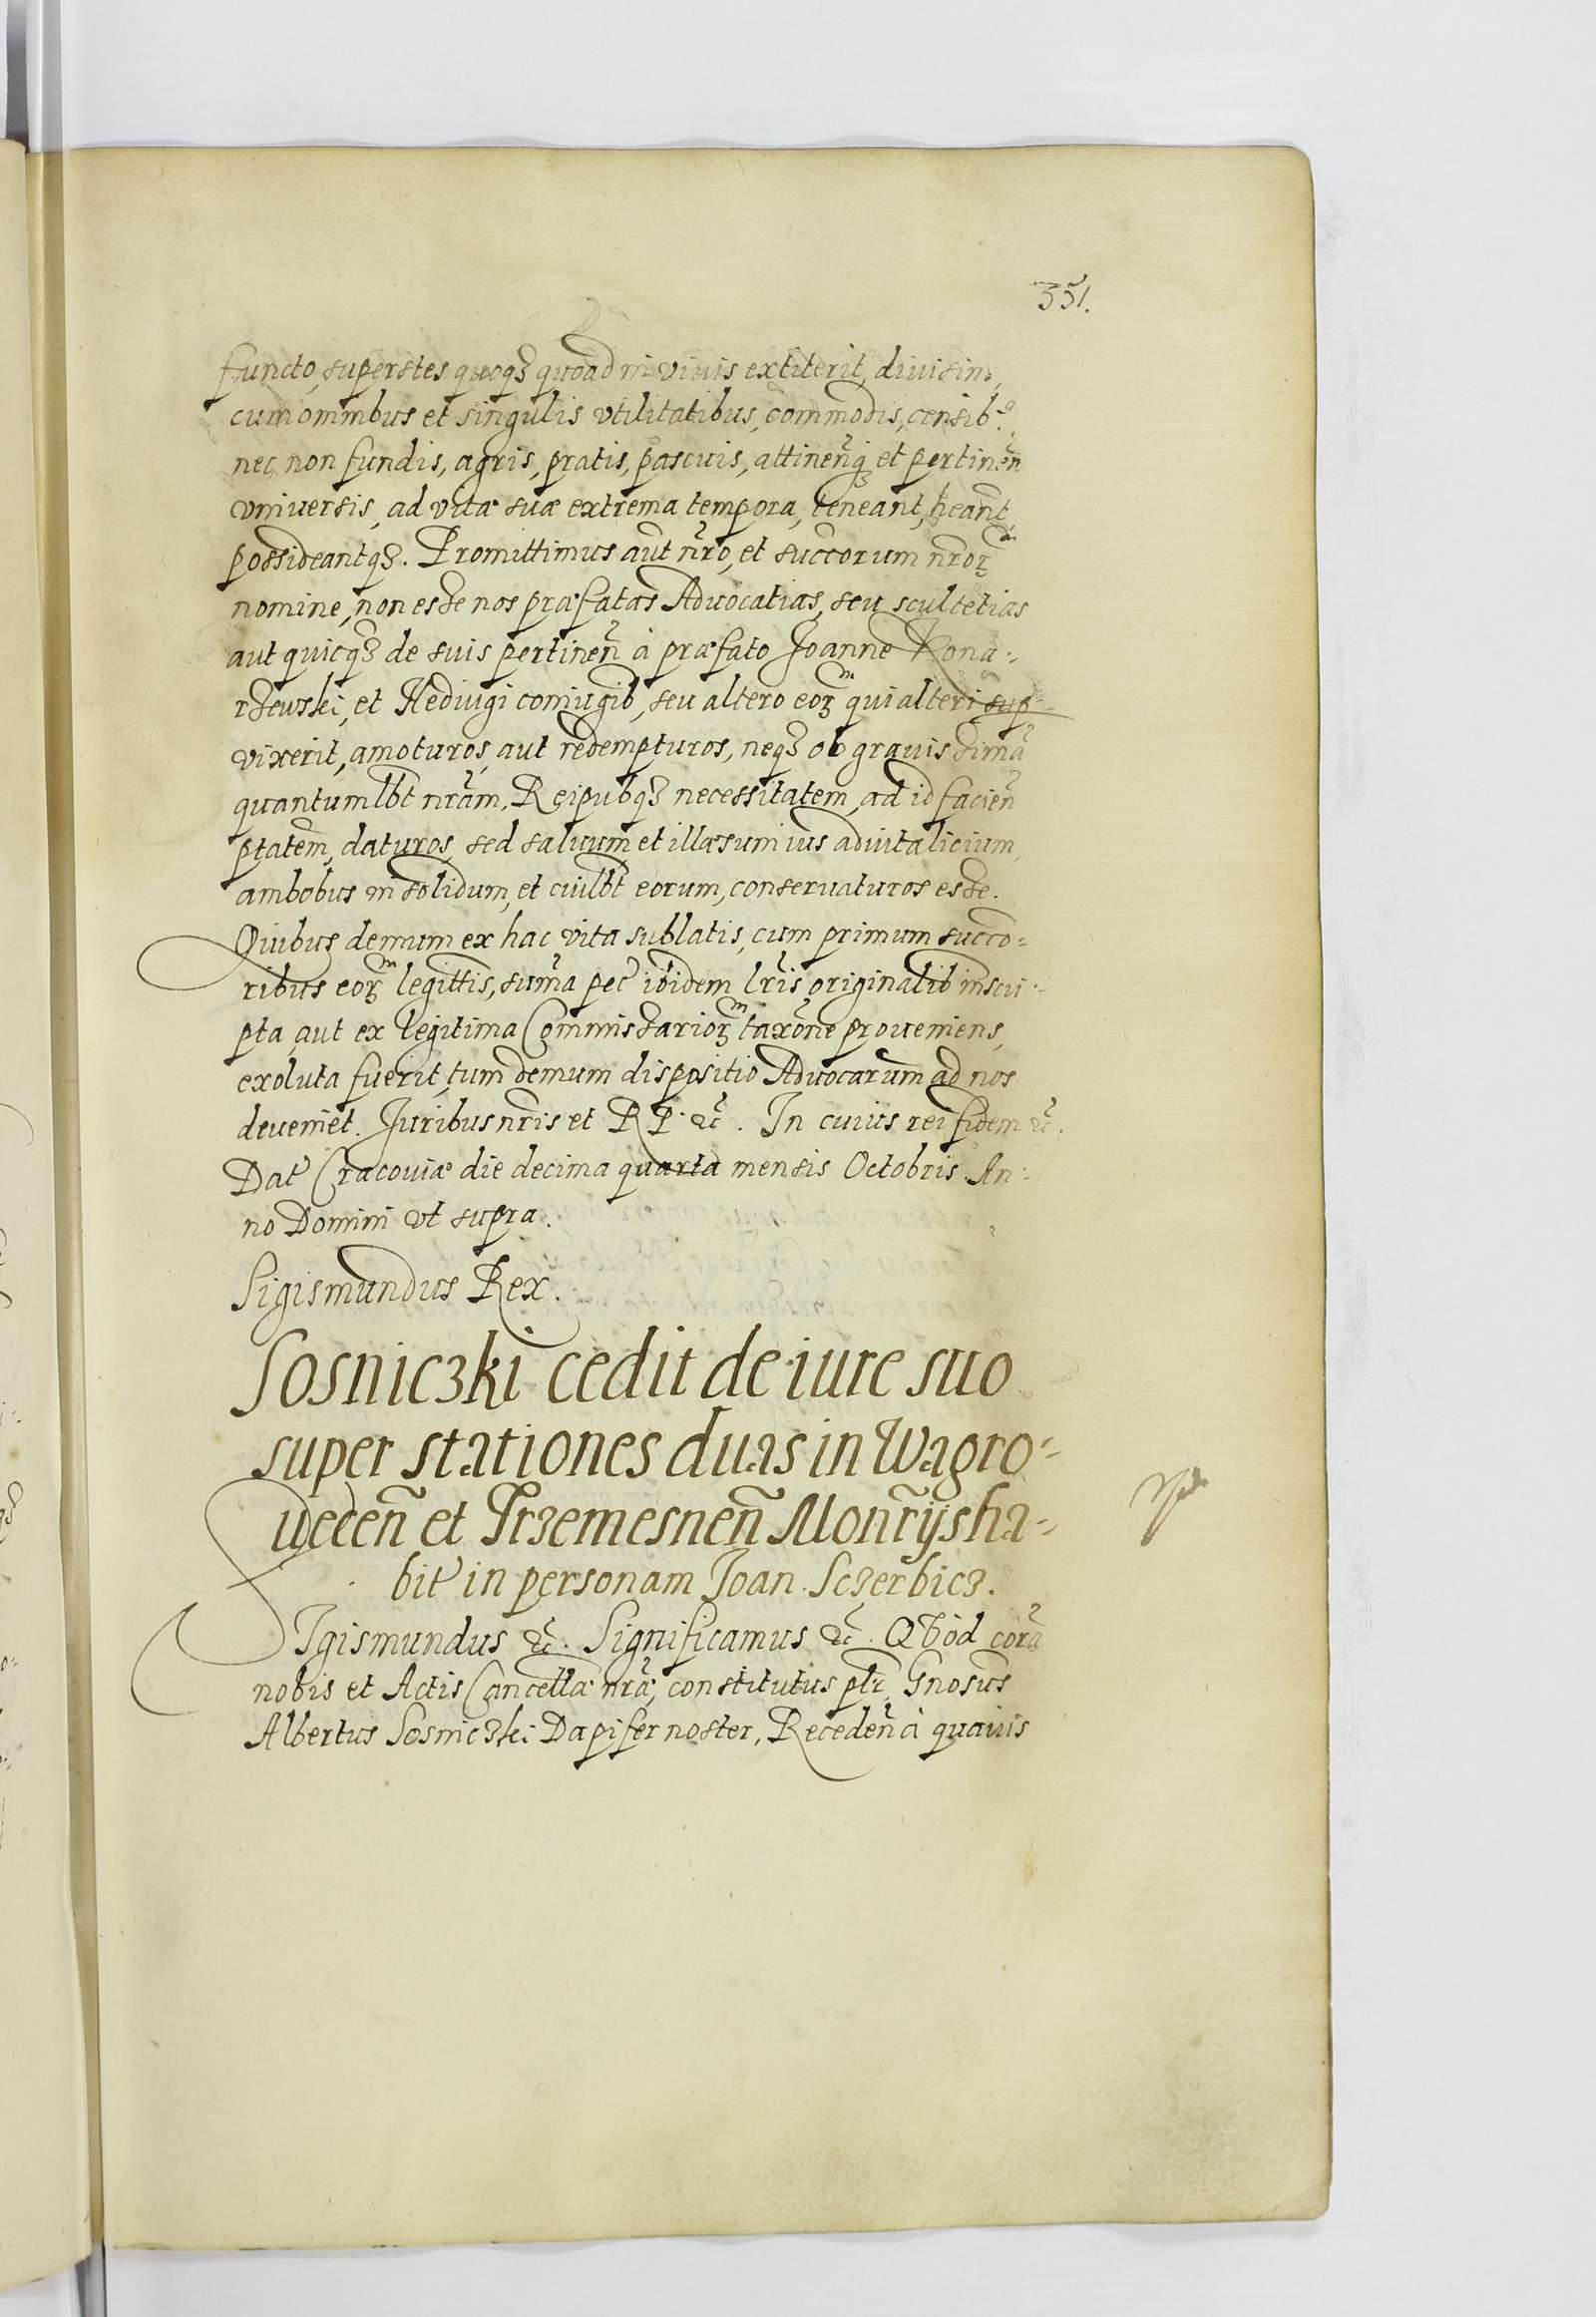 351.
functo, superstes quoqȝ quoad in vivis extiterit, divisim,
cum omnibus et singulis vtilitatibus, commodis, censib9.
nec non fundis, agris, pratis, pascuis, attinen̄q̨ et pertinen̄
vniuersis, ad vitæ suæ extrema tempora, teneant, heānt,
possideantqȝ. Promittimus aūt nr̄o, et succ̄orum nr̄orꝫ
nomine, non esse nos præfatas Advocatias, seu scultetias
aut quicqȝ de suis pertinen̄ à præfato Joanne Kona-
rsewski, et Hedvigi coniugib, seu altero eorꝫ qui alteri sup-
vixerit, amoturos, aut redempturos, neqȝ ob gravissimā
quantumlbt nr̄am, Reipubqȝ necessitatem, ad id facien̄
ptatem, daturos, sed salvum et illæsum ius advitalicium,
ambobus in solidum, et cuilbt eorum, conservaturos esse.
Quibus demum ex hac vita sublatis, cum primum succo-
ribus eorꝫ legittis, sum̄a pec̄ ibidem lr̄is originalib inscri-
pta, aut ex legitima Commissariorꝫ taxōne proveniens,
exoluta fuerit, tum demum dispositio Advocarum ad nos
deveniet. Juribus nr̄is et R P. &c̄. In cuius rei fidem &c̄.
Dat̄ Cracoviæ die decima quarta mensis Octobris An-
no Domini vt supra.
Sigismundus Rex.
Sosniczki cedit de iure suo
super stationes duas in Wagro-
vecen̄ et Trzemesnen̄ Monr̄ijs ha-
bit̄ in personam Joan. Sczerbicz.
Sigismundus &c̄. Significamus &c̄. QVod corā
nobis et Actis Cancellæ nr̄æ, constitutus pltr, Gnosus
Albertus Sosniczki Dapifer noster, Receden̄ à quavis